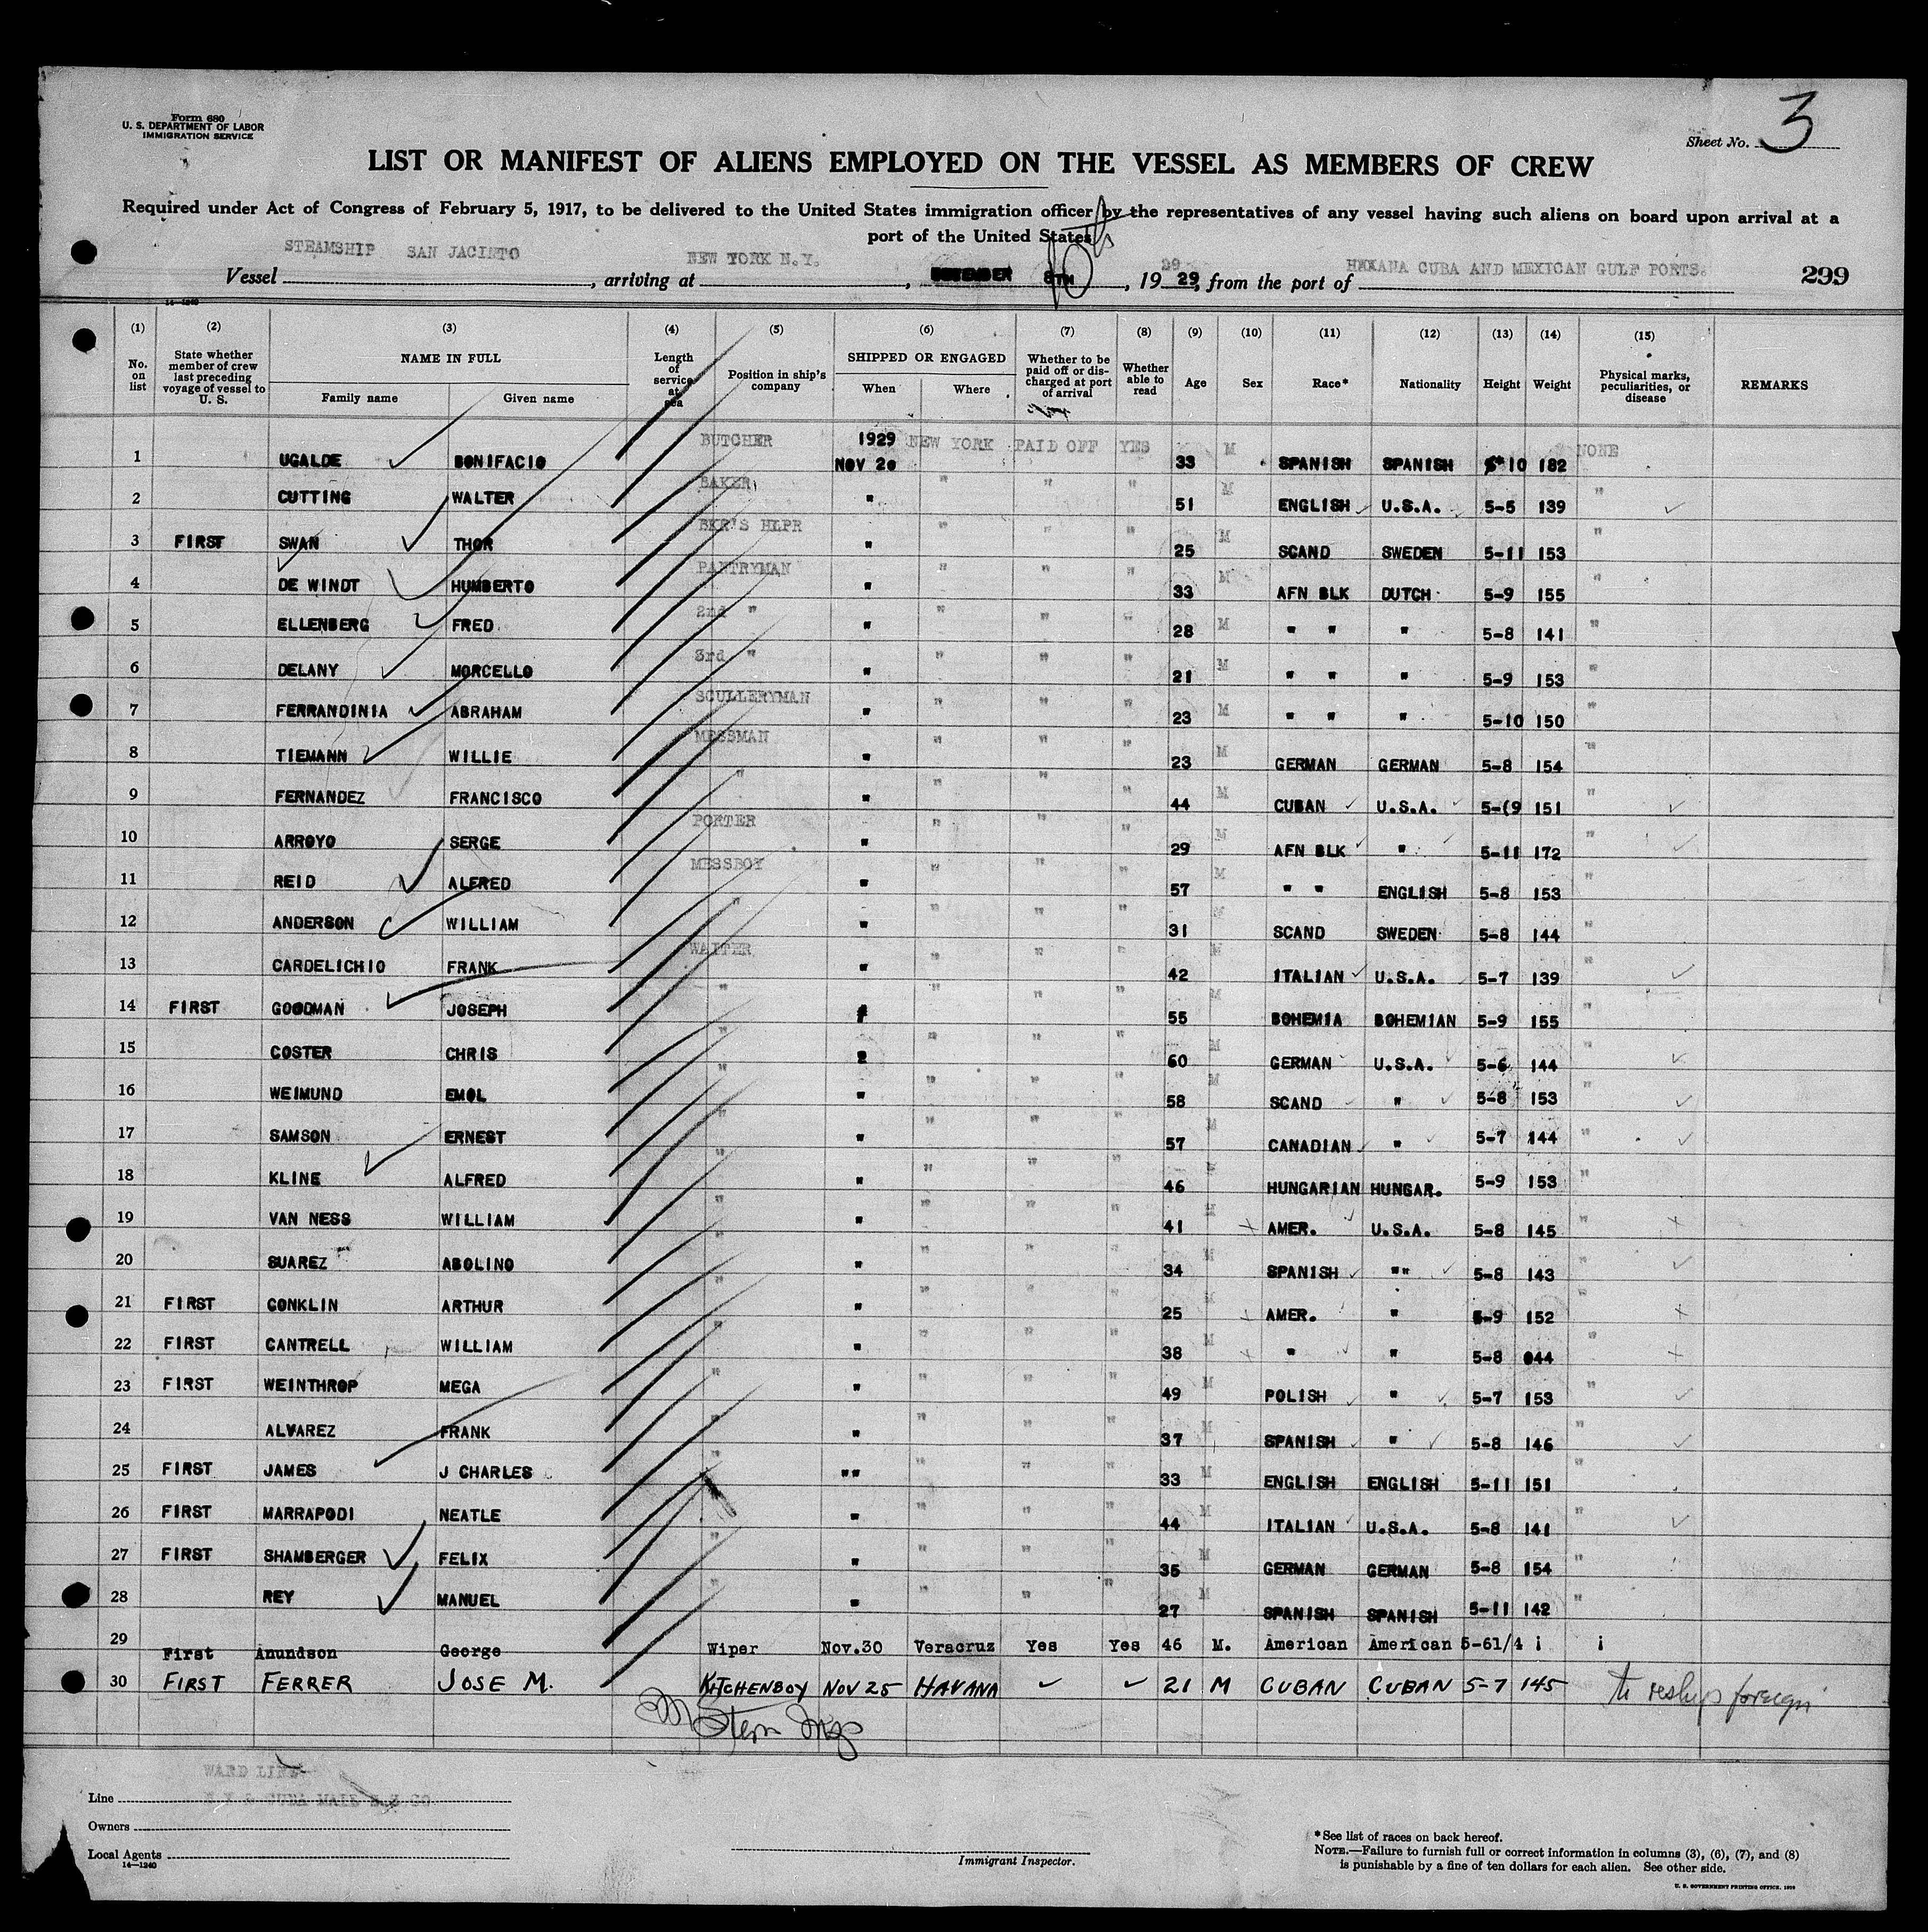 Form 680
U. S. DEPARTMENT OF LABOR
IMMIGRATION SERVICE
Sheet No. 3
LIST OR MANIFEST OF ALIENS EMPLOYED ON THE VESSEL AS MEMBERS OF CREW
Required under Act of Congress of February 5, 1917, to be delivered to the United States immigration officer by the representatives of any vessel having such aliens on board upon arrival at a
port of the United States
Vessel STEAMSHIP SAN JACINTO, arriving at NEW YORK N.Y., 8TH 10th, 19 29 29, from the port of HAXANA CUBA AND MEXICAN GULF PORTS. 299
14—1240
(1) (2) (3) (4) (5) (6) (7) (8) (9) (10) (11) (12) (13) (14) (15)
No. on list State whether member of crew last preceding voyage of vessel to U. S. NAME IN FULL Family name Given name Length of service at sea Position in ship's company SHIPPED OR ENGAGED When Where Whether to be paid off or discharged at port of arrival Whether able to read Age Sex Race* Nationality Height Weight Physical marks, peculiarities, or disease REMARKS
1 UGALDE BONIFACIO BUTCHER 1929 NOV 20 NEW YORK PAID OFF YES 33 M SPANISH SPANISH 5" 10 182 NONE
2 CUTTING WALTER BAKER " " " " 51 M ENGLISH U.S.A. 5-5 139 "
3 FIRST SWAN THOR BKR'S HLPR " " " " 25 M SCAND SWEDEN 5-11 153 "
4 DE WINDT HUMBERTO PANTRYMAN " " " " 33 M AFN BLK DUTCH 5-9 155 "
5 ELLENBERG FRED 2nd " " " " " 28 M " " " 5-8 141 "
6 DELANY MORCELLO 3rd " " " " " 21 M " " " 5-9 153 "
7 FERRANDINIA ABRAHAM SCULLERYMAN " " " " 23 M " " " 5-10 150 "
8 TIEMANN WILLIE MESSMAN " " " " 23 M GERMAN GERMAN 5-8 154 "
9 FERNANDEZ FRANCISCO " " " " " 44 M CUBAN U.S.A. 5-(9 151 "
10 ARROYO SERGE PORTER " " " " 29 M AFN BLK " 5-11 172 "
11 REID ALFRED MESSBOY " " " " 57 M " " ENGLISH 5-8 153 "
12 ANDERSON WILLIAM " " " " " 31 M SCAND SWEDEN 5-8 144 "
13 CARDELICHIO FRANK WAITER " " " " 42 M ITALIAN U.S.A. 5-7 139 "
14 FIRST GOODMAN JOSEPH " " " " 55 M BOHEMIA BOHEMIAN 5-9 155 "
15 COSTER CHRIS " 2 " " " 60 M GERMAN U.S.A. 5-6 144 "
16 WEIMUND EMOL " " " " " 58 M SCAND " 5-8 153 "
17 SAMSON ERNEST " " " " " 57 M CANADIAN " 5-7 144 "
18 KLINE ALFRED " " " " " 46 M HUNGARIAN HUNGAR. 5-9 153 "
19 VAN NESS WILLIAM " " " " " 41 M AMER. U.S.A. 5-8 145 "
20 SUAREZ ABOLINO " " " " " 34 M SPANISH "" 5-8 143 "
21 FIRST CONKLIN ARTHUR " " " " " 25 M AMER. " 5-9 152 "
22 FIRST CANTRELL WILLIAM " " " " " 38 M " " 5-8 044 "
23 FIRST WEINTHROP MEGA " " " " " 49 M POLISH " 5-7 153 "
24 ALVAREZ FRANK " " " " " 37 M SPANISH " 5-8 146 "
25 FIRST JAMES J CHARLES " "" " " " 33 M ENGLISH ENGLISH 5-11 151 "
26 FIRST MARRAPODI NEATLE " " " " 44 M ITALIAN U.S.A. 5-8 141 "
27 FIRST SHAMBERGER FELIX " " " " " 35 M GERMAN GERMAN 5-8 154 "
28 REY MANUEL " " " " " 27 M SPANISH SPANISH 5-11 142 "
29 First Anundson George Wiper Nov.30 Veracruz Yes Yes 46 M. American American 5-61/4 i i
30 FIRST FERRER JOSE M. KITCHENBOY NOV 25 HAVANA ✓ ✓ 21 M CUBAN CUBAN 5-7 145 to reship foreign
Stern Insp
WARD LINE
Line N Y & CUBA MAIL S.S CO
Owners
Local Agents
14—1240
Immigrant Inspector.
* See list of races on back hereof.
NOTE.—Failure to furnish full or correct information in columns (3), (6), (7), and (8)
is punishable by a fine of ten dollars for each alien. See other side.
U. S. GOVERNMENT PRINTING OFFICE